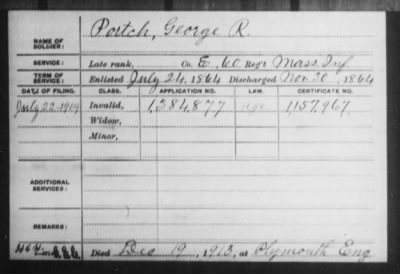 NAME OF SOLDIER: Portch, George R.
SERVICE: Late rank, Co. E, 60 Reg't Mass. Inf
TERM OF SERVICE: Enlisted July 24, 1864 Discharged Nov. 30, 1864
DATE OF FILING. CLASS. APPLICATION NO. LAW. CERTIFICATE NO.
July 22-1909 Invalid, 1,384,877 age 1,157,967
Widow,
Minor,
ADDITIONAL SERVICES:
REMARKS:
Died Dec 19, 1913, at Plymouth Eng